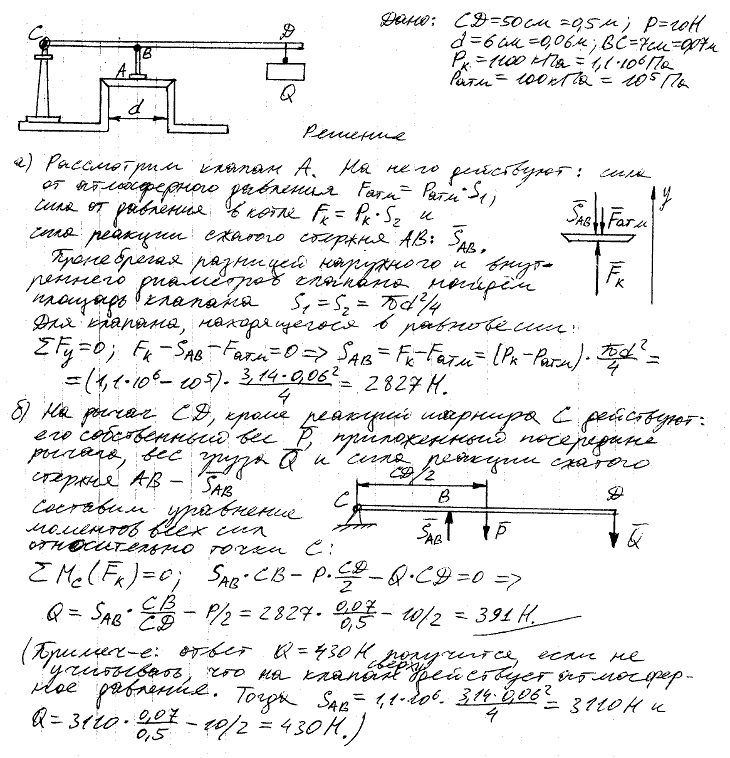 Дано: CD=50см=0,5м; P=10Н
d=6см=0,06м; BC=7см=0,07м
Pк=1100кПа=1,1·10⁶Па
Pатм=100кПа=10⁵Па
C
B
D
A
d
Q
Решение
а) Рассмотрим клапан A. На него действуют: сила
от атмосферного давления Fатм=Pатм·S₁;
сила от давления в котле Fк=Pк·S₂ и
сила реакции сжатого стержня AB: S̄AB.
S̄AB F̄атм y
F̄к
Пренебрегая разницей наружного и внут-
реннего диаметров клапана найдём
площадь клапана S₁=S₂=πd²/4
Для клапана, находящегося в равновесии:
ΣFy=0; Fк–SAB–Fатм=0 => SAB=Fк–Fатм=(Pк–Pатм)·πd²/4=
=(1,1·10⁶–10⁵)·3,14·0,06²/4=2827Н.
б) На рычаг CD, кроме реакций шарнира C действуют:
его собственный вес P̄, приложенный посередине
рычага, вес груза Q̄ и сила реакции сжатого
стержня AB – S̄AB
CD/2
C B D
S̄AB P̄ Q̄
Составим уравнение
моментов всех сил
относительно точки C:
ΣMC(F̄к)=0; SAB·CB–P·CD/2–Q·CD=0 =>
Q=SAB·CB/CD–P/2=2827·0,07/0,5–10/2=391Н.
(Примеч-е: ответ Q=430Н получится, если не
учитывать, что на клапан сверху действует атмосфер-
ное давление. Тогда SAB=1,1·10⁶·3,14·0,06²/4=3110Н и
Q=3110·0,07/0,5–10/2=430Н.)